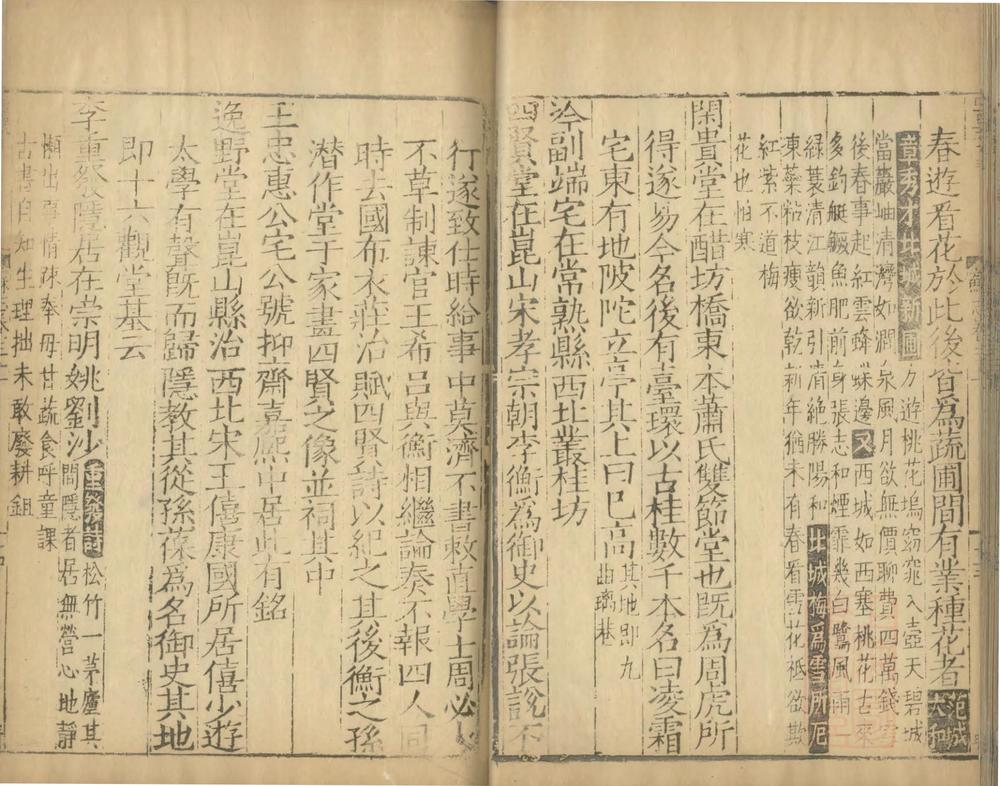 春遊看花於此後皆為蔬圃間有業種花者范成大和
章秀才北城新圃方遊桃花塢窈窕入壺天碧城
當巖岫清灣如澗泉風月欲無價聊費四萬錢
後春事起紅雲蜂蝶邊又西城如西塞桃花古來
多釣艇鱖魚肥前身張志和煙霏幾白鷺風雨
綠蓑清江韻新引清絕勝陽和北城梅為雪所厄
凍蘂粘枝瘦欲乾新年猶未有春看雪花祗欲欺
紅紫不道梅
花也怕寒
閑貴堂在醋坊橋東本蕭氏雙節堂也既為周虎所
得遂易今名後有臺環以古桂數千本名曰凌霜
宅東有地陂陀立亭其上曰巳高其地即九曲璃巷
冷副端宅在常熟縣西北叢桂坊
四賢堂在崑山宋孝宗朝李衡為御史以論張說不
行遂致仕時給事中莫濟不書敕直學士周必大
不草制諫官王希呂與衡相繼論奏不報四人同
時去國布衣莊治賦四賢詩以紀之其後衡之孫
潜作堂于家畫四賢之像並祠其中
王忠惠公宅公號抑齋嘉熙中居此有銘
逸野堂在崑山縣治西北宋王僖康國所居僖少遊
太學有聲既而歸隱教其從孫葆為名御史其地
即十六觀堂基云
李重發隱居在崇明姚劉沙重發作詩松竹一茅廬其間隱者居無營心地靜
懶出野情疎奉母甘蔬食呼童課
古書自知生理拙未敢廢耕鉏